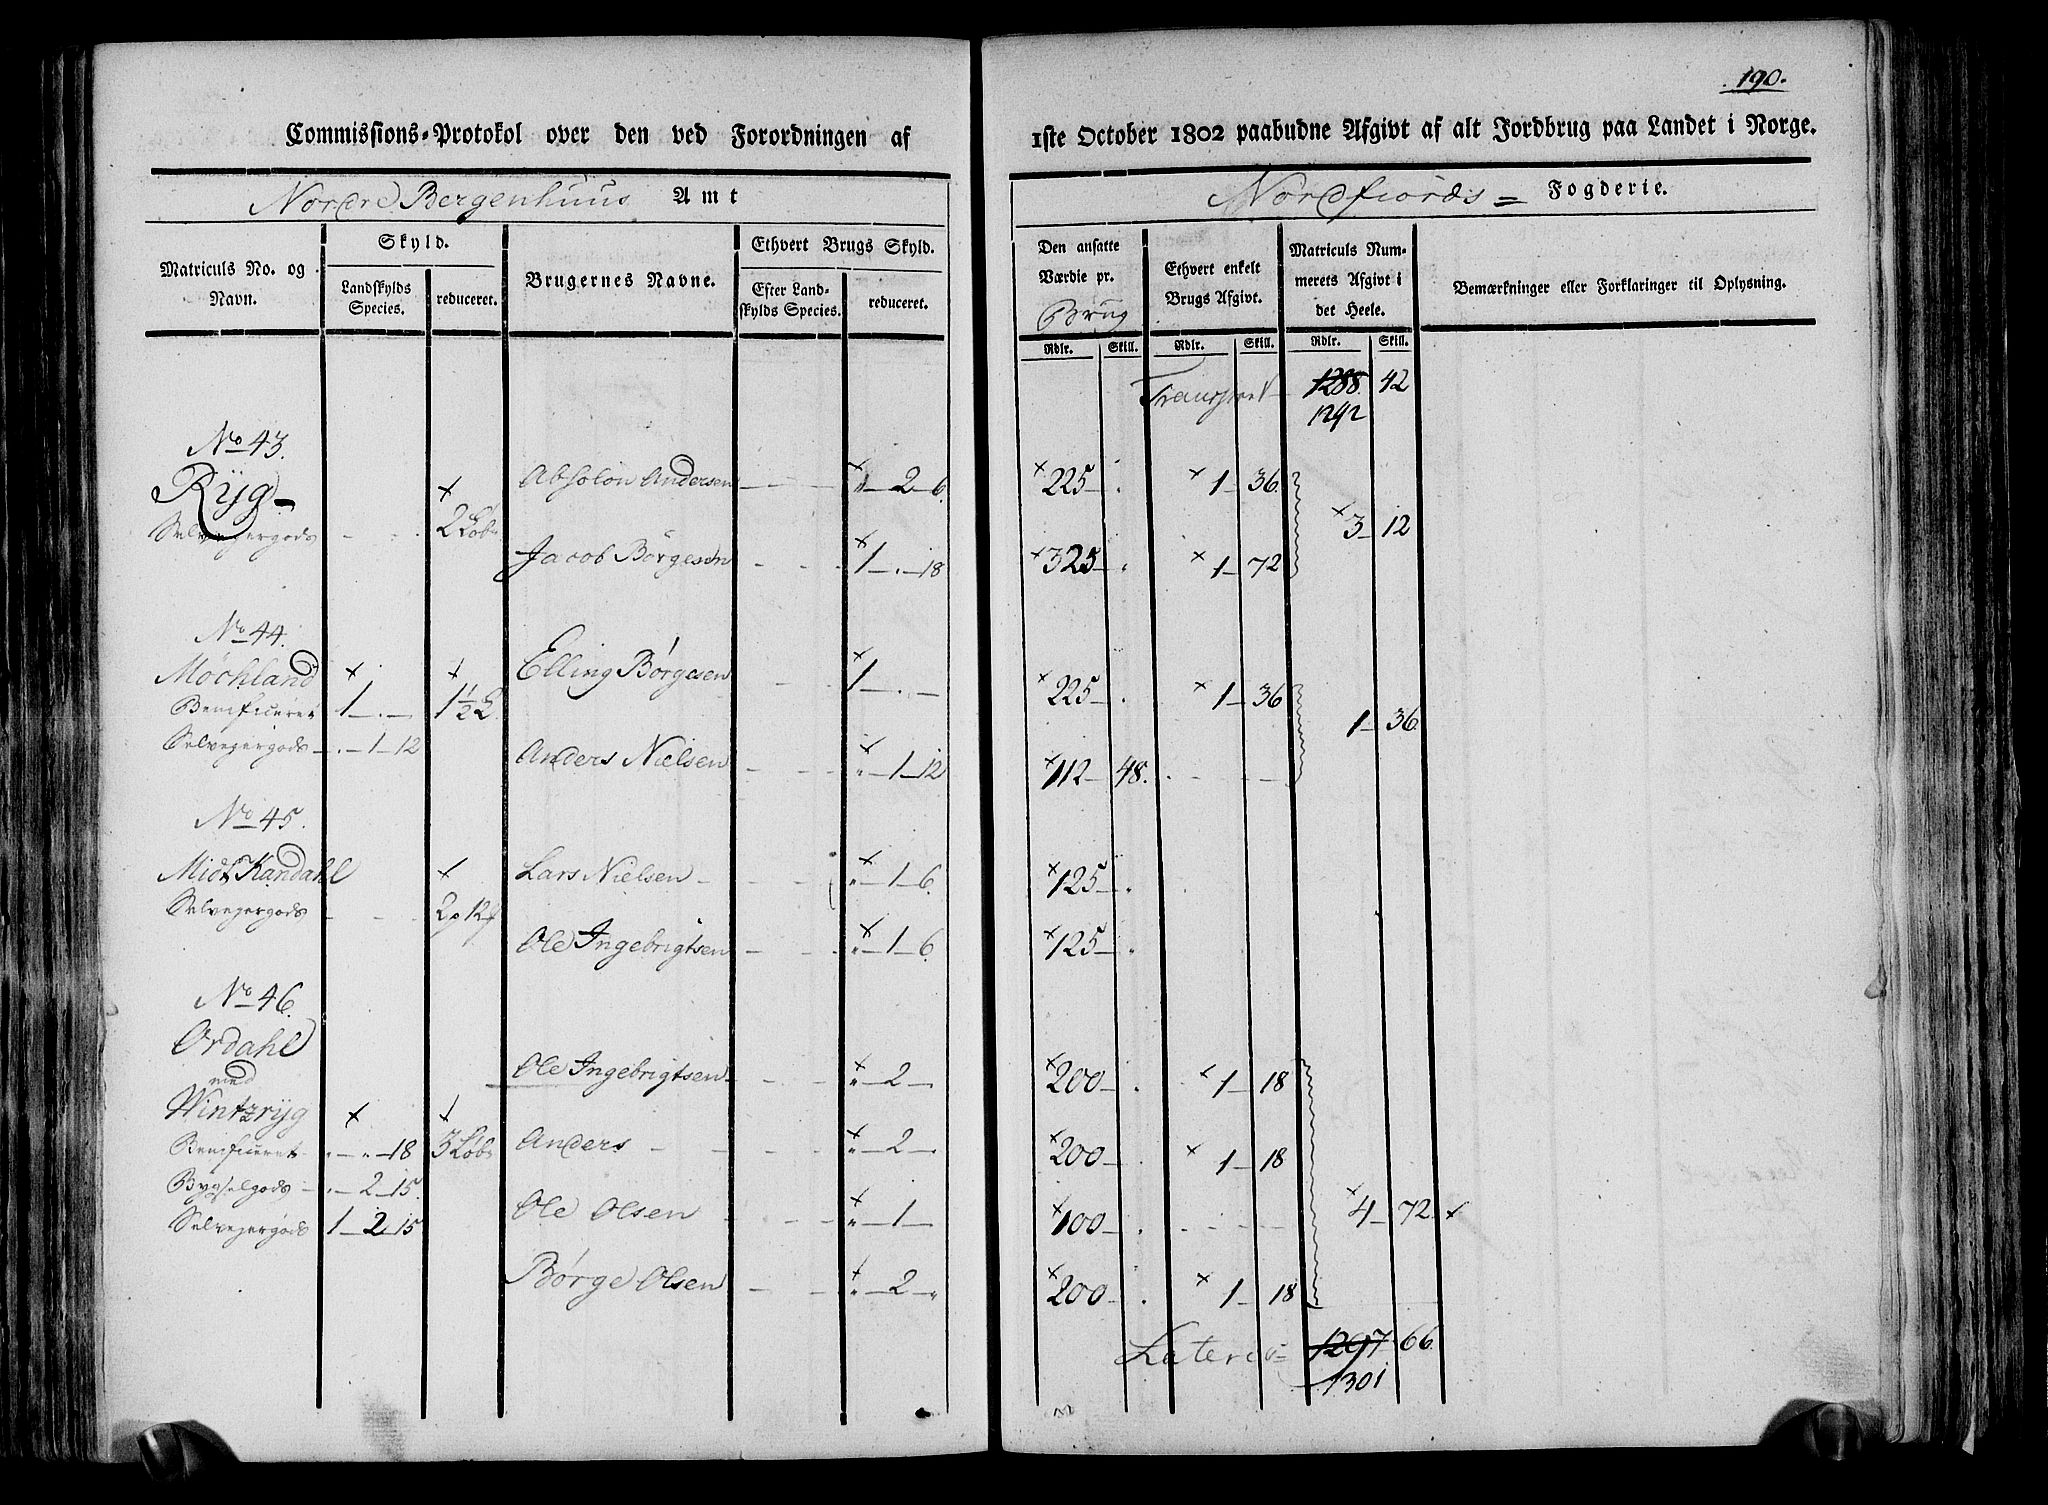 190.
Commissions-Protokol over den ved Forordningen af 1ste October 1802 paabudne Afgivt af alt Jordbrug paa Landet i Norge.
Nordre Bergenhuus Amt
Nordfiords = Fogderie.
Matriculs No. og Navn.
Skyld.
Landskylds Species.
reduceret.
Brugernes Navne.
Ethvert Brugs Skyld.
Efter Landskylds Species.
reduceret.
Den ansatte Værdie pr.
Brug
Rdlr. Skill.
Ethvert enkelt Brugs Afgivt.
Rdlr. Skill.
Matriculs Nummerets Afgivt i det Heele.
Rdlr. Skill.
Bemærkninger eller Forklaringer til Oplysning.
Transport 1288. 42
1292
No 43.
Ryg
Absolon Andersen — — — 2 — 6. 225 — . 1 — 36.
Selvejergods - - . 2 Løb 3 — 12
Jacob Børgesen - - - 1 — . — 18 325 — . 1 — 72
No 44.
Møchland
Elling Børgesen 1 — . — 225 — . 1 — 36
Beneficeret 1 — . — 1½ L. 1 — 36.
Selvejergods — . — 1 — 12
Anders Nielsen — - - „ — 1 — 12 112 — 48. - - - -
No 45.
Midt Kandahl
Lars Nielsen - - - „ — 1 — 6. 125 — .
Selvejergods - - - 2 p 12
Ole Ingebrigtsen - - - „ — 1 — 6. 125 — .
No 46.
Ordahl
med
Ole Ingebrigtsen - - - „ — 2 — 200 — . 1 — 18
Wintzryg
Beneficeret „ — „ — 18 3 Løb
Anders - - - „ — 2 — 200 — . 1 — 18
Bygselgods - . — 2 — 15.
Ole Olsen - - - „ — 1 — 100 — . - - - 4 — 72.
Selvejergods 1 — 2 — 15
Børge Olsen - - - „ — 2 — „ 200 — . 1 — 18
Lateris = 1297 66.
1301